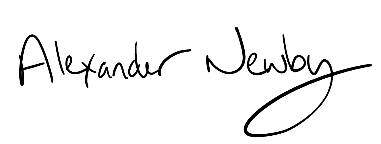 Alexander Newby